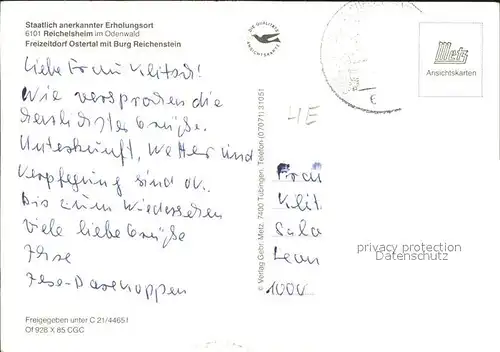 Staatlich anerkannter Erholungsort
6101 Reichelsheim im Odenwald
Freizeitdorf Ostertal mit Burg Reichenstein
DIE QUALITÄTS ANSICHTSKARTE
Metz
Ansichtskarten
Liebe Frau Klitsch!
Wie versprochen die
herzlichsten Grüße.
Unterkunft, Wetter und
Verpflegung sind ok.
Bis zum Wiedersehen
viele liebe Grüße
Ihre
© Verlag Gebr. Metz, 7400 Tübingen, Telefon (07071) 31051
Frau
Klit
1000
privacy protection
Datenschutz
Freigegeben unter C 21/44651
Of 928 X 85 CGC